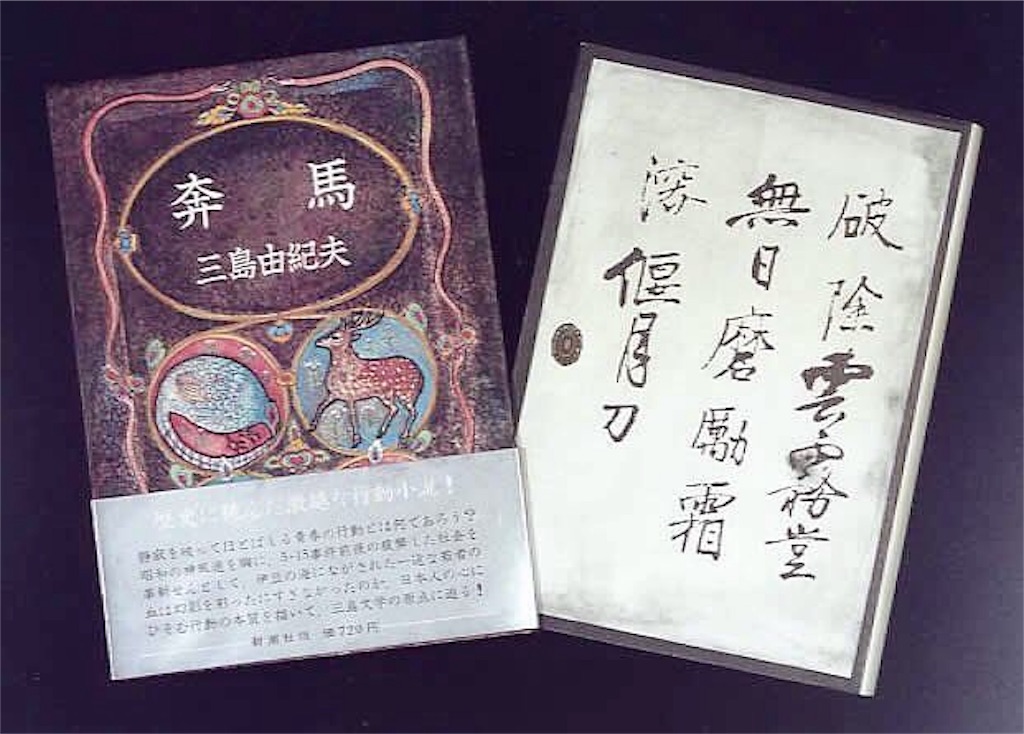 奔馬
三島由紀夫
歴史に 激越な行動小説!
静寂を破ってほとばしる青春の行動とは何であろう?
昭和の神風連を胸に、5・15事件前後の疲弊した社会を
革新せんとして、伊豆の海にながされた一途な若者の
血は幻影を彩ったにすぎなかったのか。日本人の心に
ひそむ行動の本質を描いて、三島文学の原点に迫る!
新潮社版 価720円
破除雲霧豈
無日磨勵霜
深偃月刀